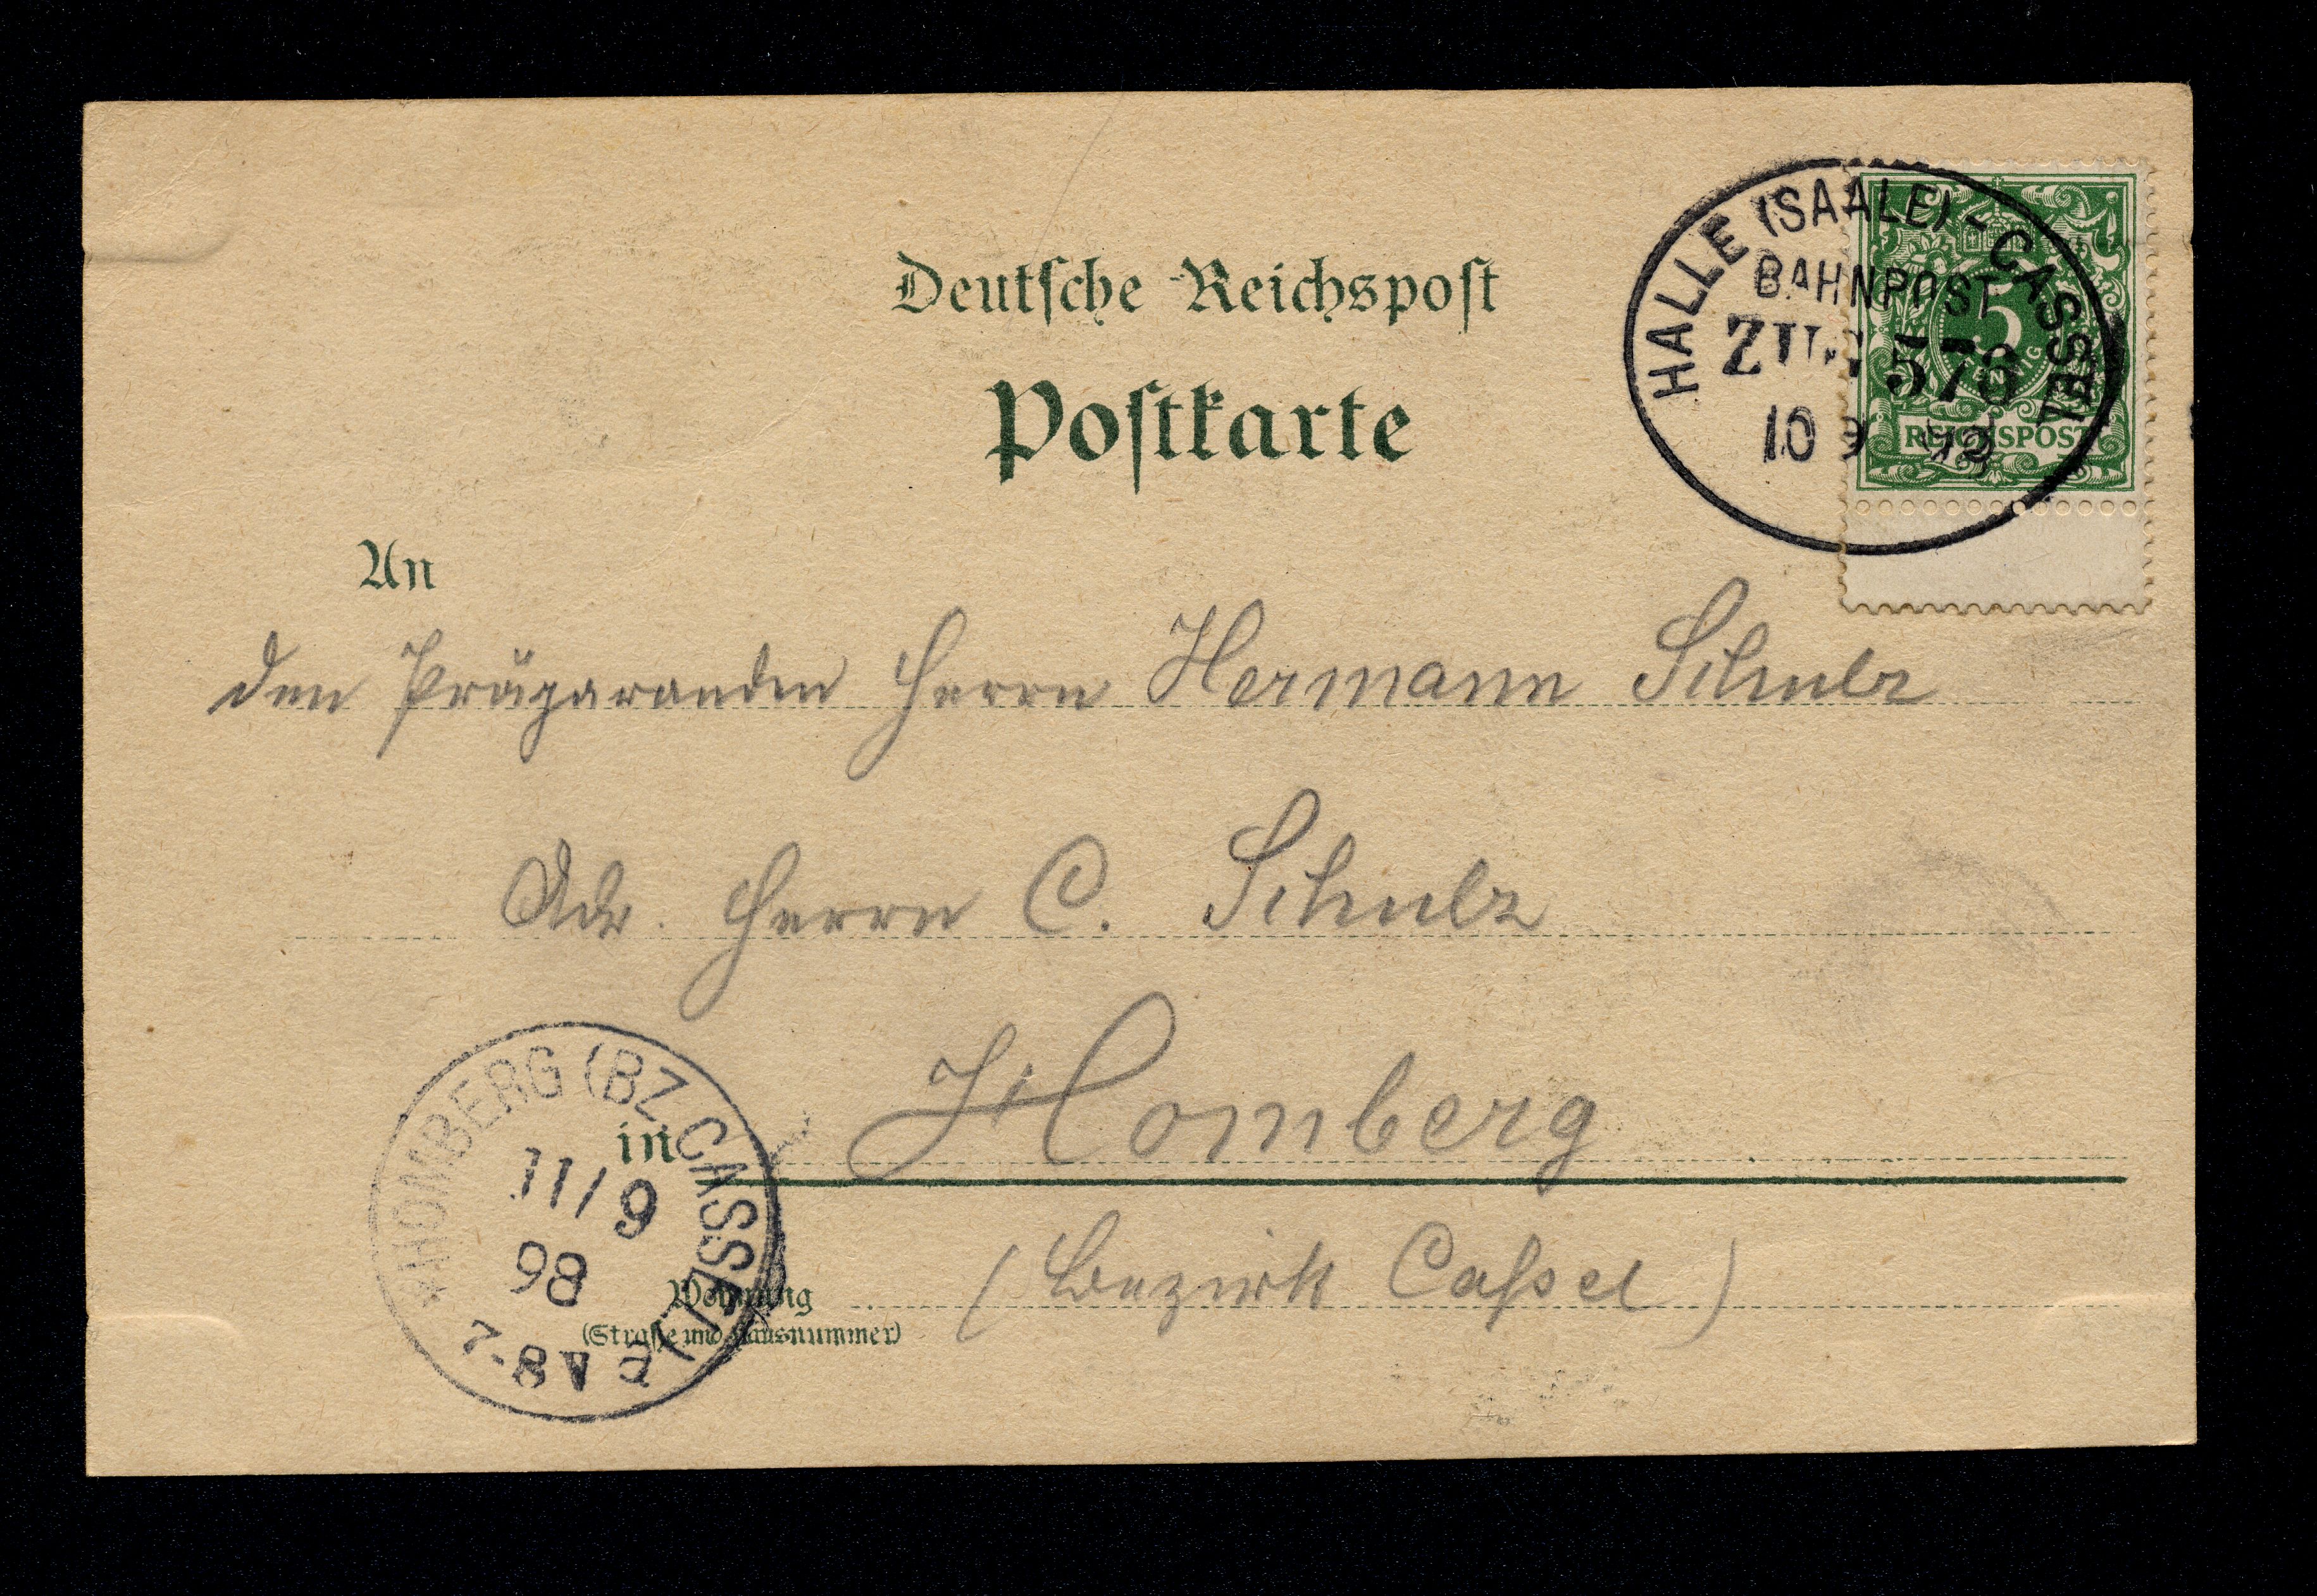 Deutsche Reichspost
Postkarte
HALLE (SAALE) - CASSEL
BAHNPOST
ZUG 576
10 9 98
5
REICHSPOST
An
den Präparanden Herrn Hermann Schulz
Adr. Herrn C. Schulz
in Homberg
(Bezirk Cassel)
Wohnung
(Straße und Hausnummer)
* HOMBERG (BZ. CASSEL)
11/9
98
7-8V